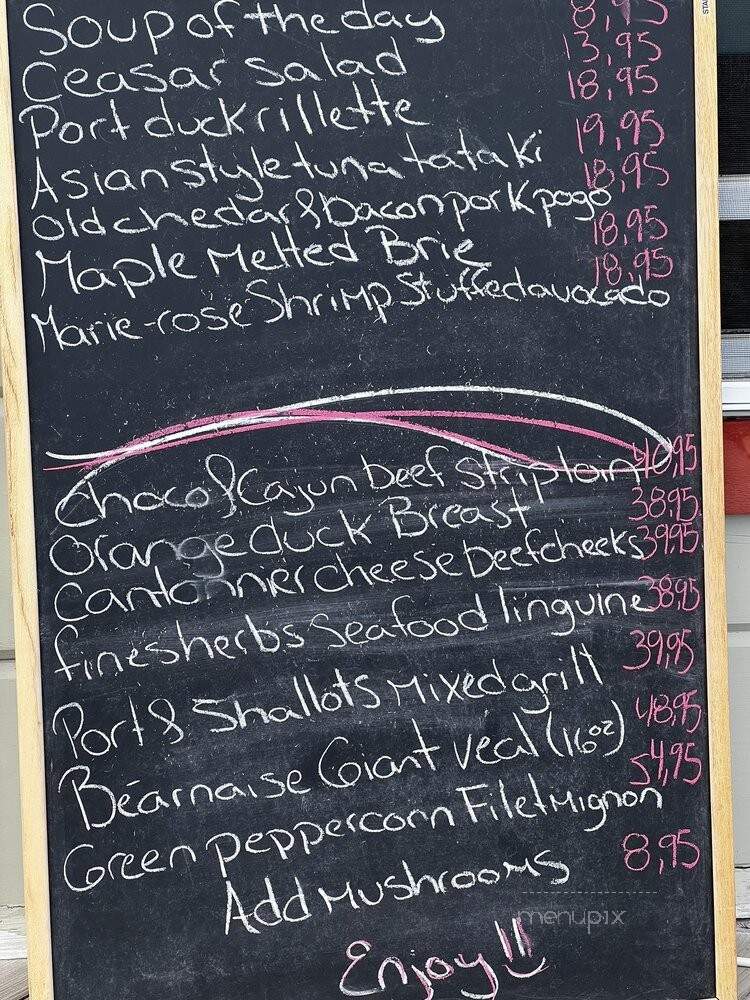 Soup of the day 8,95
Ceasar Salad 13,95
Port duck rillette 18,95
Asian style tuna tataki 19,95
Old chedar & bacon pork pogo 18,95
Maple Melted Brie 18,95
Marie-rose Shrimp Stuffed avocado 18,95
Choco & Cajun beef striploin 40,95
Orange duck Breast 38,95
Cantonnier cheese beef cheeks 39,95
fines herbs Seafood linguine 38,95
Port & Shallots Mixed grill 39,95
Béarnaise Giant veal (16oz) 48,95
Green peppercorn Filet Mignon 54,95
Add Mushrooms 8,95
menupix
Enjoy!!